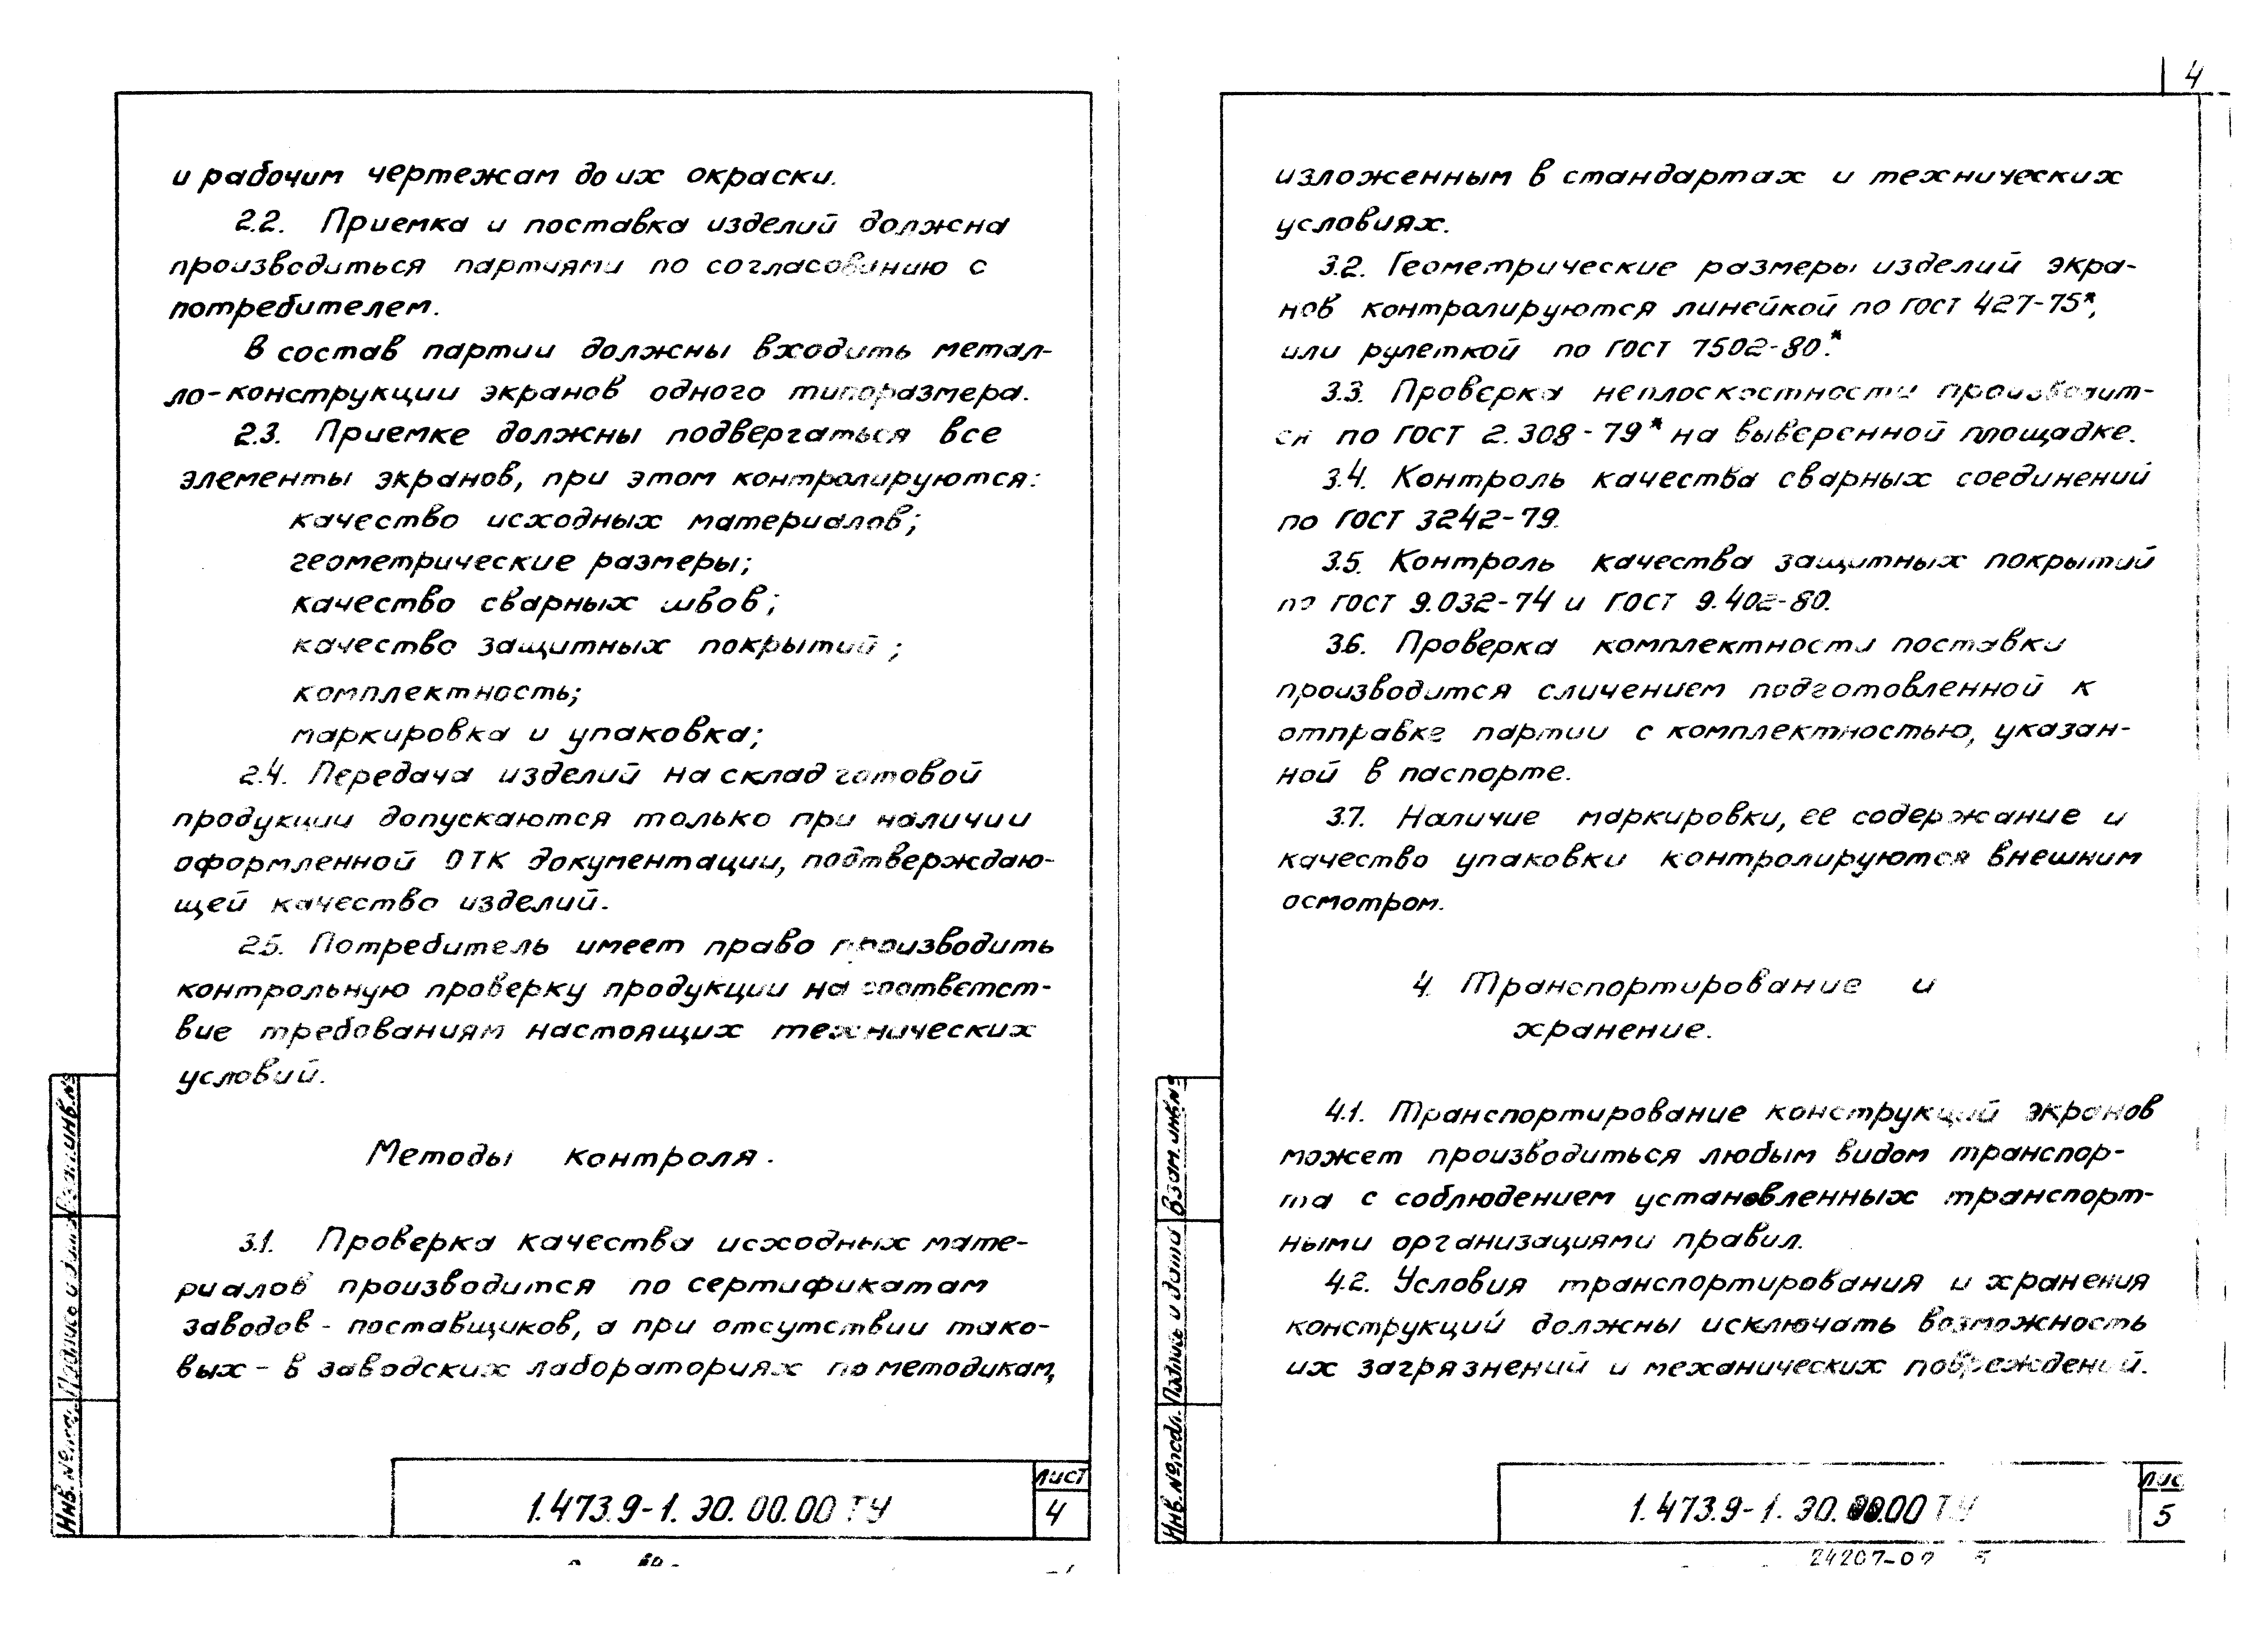 и рабочим чертежам до их окраски.
2.2. Приемка и поставка изделий должна
производиться партиями по согласованию с
потребителем.
В состав партии должны входить метал-
ло-конструкции экранов одного типоразмера.
2.3. Приемке должны подвергаться все
элементы экранов, при этом контролируются:
качество исходных материалов;
геометрические размеры;
качество сварных швов;
качество защитных покрытий;
комплектность;
маркировка и упаковка;
2.4. Передача изделий на склад готовой
продукции допускаются только при наличии
оформленной ОТК документации, подтверждаю-
щей качество изделий.
2.5. Потребитель имеет право производить
контрольную проверку продукции на соответст-
вие требованиям настоящих технических
условий.
Методы контроля.
3.1. Проверка качества исходных мате-
риалов производится по сертификатам
заводов - поставщиков, а при отсутствии тако-
вых - в заводских лабораториях по методикам,
1.473.9-1.ЭО.00.00 ТУ
Лист
4
Инв. №
Подпись и дата
Взам. инв. №
4
изложенным в стандартах и технических
условиях.
3.2. Геометрические размеры изделий экра-
нов контролируются линейкой по ГОСТ 427-75*,
или рулеткой по ГОСТ 7502-80.*
3.3. Проверка неплоскостности производит-
ся по ГОСТ 2.308-79* на выверенной площадке.
3.4. Контроль качества сварных соединений
по ГОСТ 3242-79.
3.5. Контроль качества защитных покрытий
по ГОСТ 9.032-74 и ГОСТ 9.402-80.
3.6. Проверка комплектности поставки
производится сличением подготовленной к
отправке партии с комплектностью, указан-
ной в паспорте.
3.7. Наличие маркировки, ее содержание и
качество упаковки контролируются внешним
осмотром.
4. Транспортирование и
хранение.
4.1. Транспортирование конструкций экранов
может производиться любым видом транспор-
та с соблюдением установленных транспорт-
ными организациями правил.
4.2. Условия транспортирования и хранения
конструкций должны исключать возможность
их загрязнений и механических повреждений.
1.473.9-1.ЭО.00.00 ТУ
Лис
5
Инв. № подл.
Подпись и дата
Взам. инв. №
24207-02 5